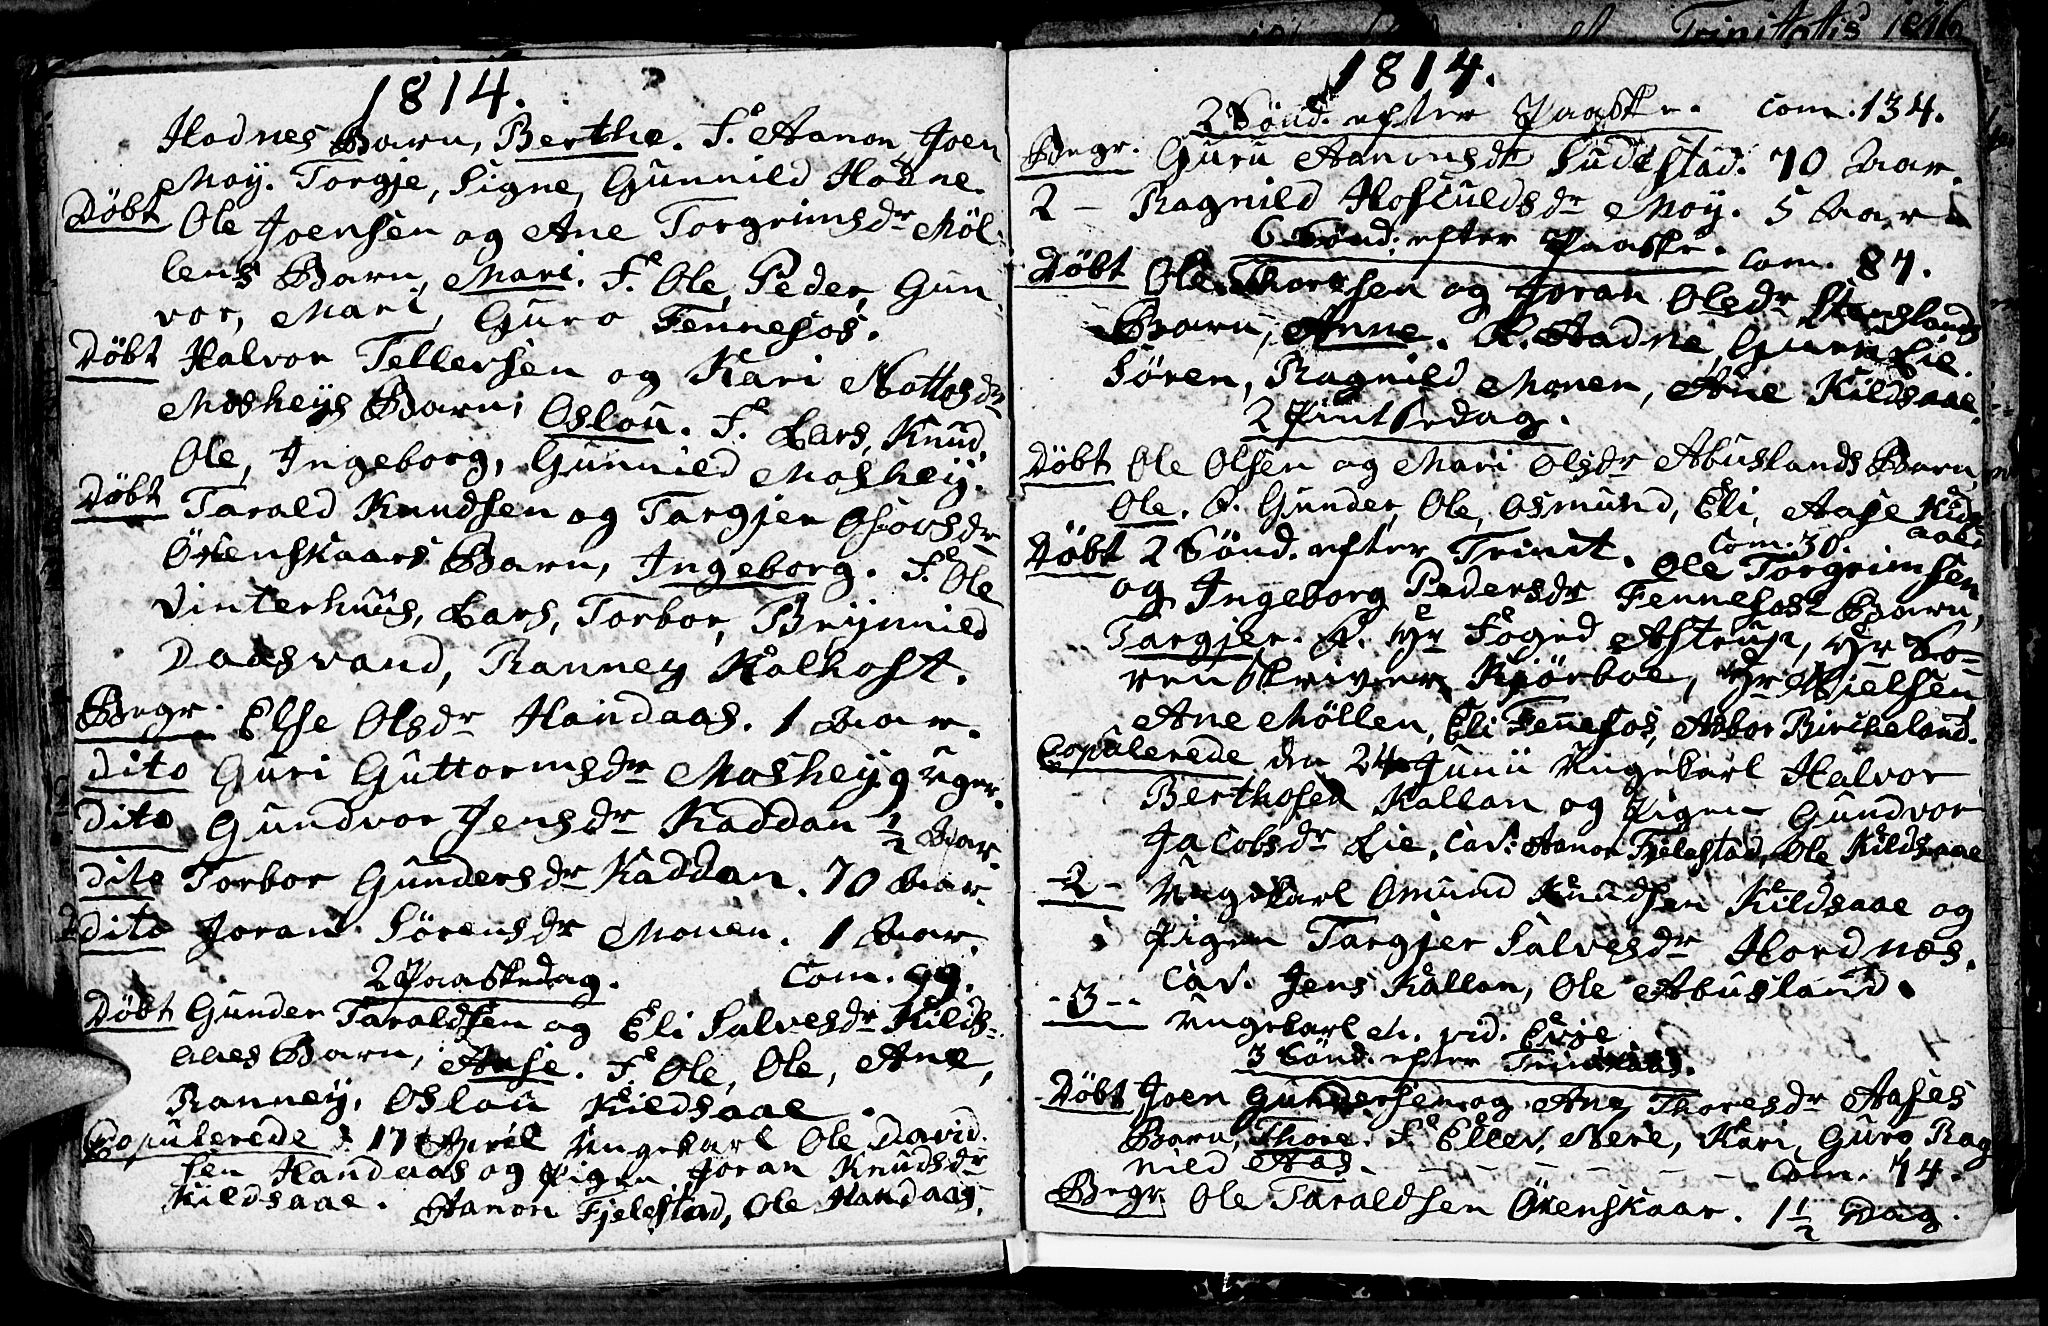 1814.
Hodnes Barn, Berthe. F. Aanon Joen
Moy. Torgje, Signe, Gunnild Hodne.
Döbt Ole Joensen og Ane Torgrimsdr Möl-
lens Barn, Mari. F. Ole, Peder, Gun-
vor, Mari, Guro Fennefos.
Döbt Halvor Tellefsen og Kari Nottosdr
Mosheys Barn, Oslou. F. Lars, Knud,
Ole, Ingeborg, Gunnild Moshey.
Döbt Tarald Knudsen og Targjer
Örenskaars Barn, Ingeborg. F. Ole
Vinterhuus, Lars, Torbor, Brynnild
Daasvand, Ranney Kalhost.
Begr. Else Olsdr Handaas. 1 Aar.
dito Guri Guttormsdr Moshey 9 Uger.
dito Gundvor Jensdr Kaddan ½ Aar.
dito Torbor Gundersdr Kaddan. 70 Aar.
dito Joran Sörensdr Monen. 1 Aar.
2 Paaskedag. Com. 99.
Döbt Gunder Taraldsen og Eli Salvesdr Kilds-
aaes Barn, Aase. F. Ole, Ole, Ane,
Ranney, Oslou Kildsaae.
Copulerede d 17 April Ungekarl Ole David-
sen Handaas og Pigen Joran Knudsdr
Kildsaae. Aanon Fjelestad, Ole Handaas.
Trinitatis 1816
1814.
2 Sönd. efter Paaske. Com. 134.
Begr. Guru Aanonsdr Sudestad. 70 Aar.
2 - Ragnild Hosculdsdr Moy. 5 Aar
6 Sönd. efter Paaske. Com. 87.
Döbt Ole Thoresen og Joran Olsdr Stenslands
Barn, Anne. F. Aadne, Guru Lie.
Sören, Ragnild Monen, Ane Kildsaae.
2 Pintsedag.
Döbt Ole Olsen og Mari Olsdr Abuslands Barn,
Ole. F. Gunder, Ole, Osmund, Eli, Aase Kilds-
aae
Döbt 2 Sönd. efter Trinit. Com. 30. Ole Torgrimsen
og Ingeborg Pedersdr Fennefos Barn,
Targjer. F. Hr Foged Astrup, Hr So-
renskriver Kjörboe, Hr Nielsen,
Ane Möllen, Eli Fennefos, Asbor Bircheland.
Copulerede den 24 Junii Ungekarl Halvor
Berthosen Kallan og Pigen Gundvor
Jacobsdr Lie. Cav: Aanon Fjelestad, Ole Kildsaae
-2- Ungekarl Omund Knudsen Kildsaae og
Pigen Targjer Salvesdr Hordnes.
Cav. Jens Kallan, Ole Abusland.
-3-- Ungekarl &c. vid. Evje
3 Sönd. efter Trinitatis.
Döbt Joen Gundersen og Ane Thoresdr Aases
Barn, Thore. F. Ellev, Nere, Kari, Guro Rag
nild Aas. - - - - - - Com. 74.
Begr. Ole Taraldsen Örenskaar. 1½ Dag.